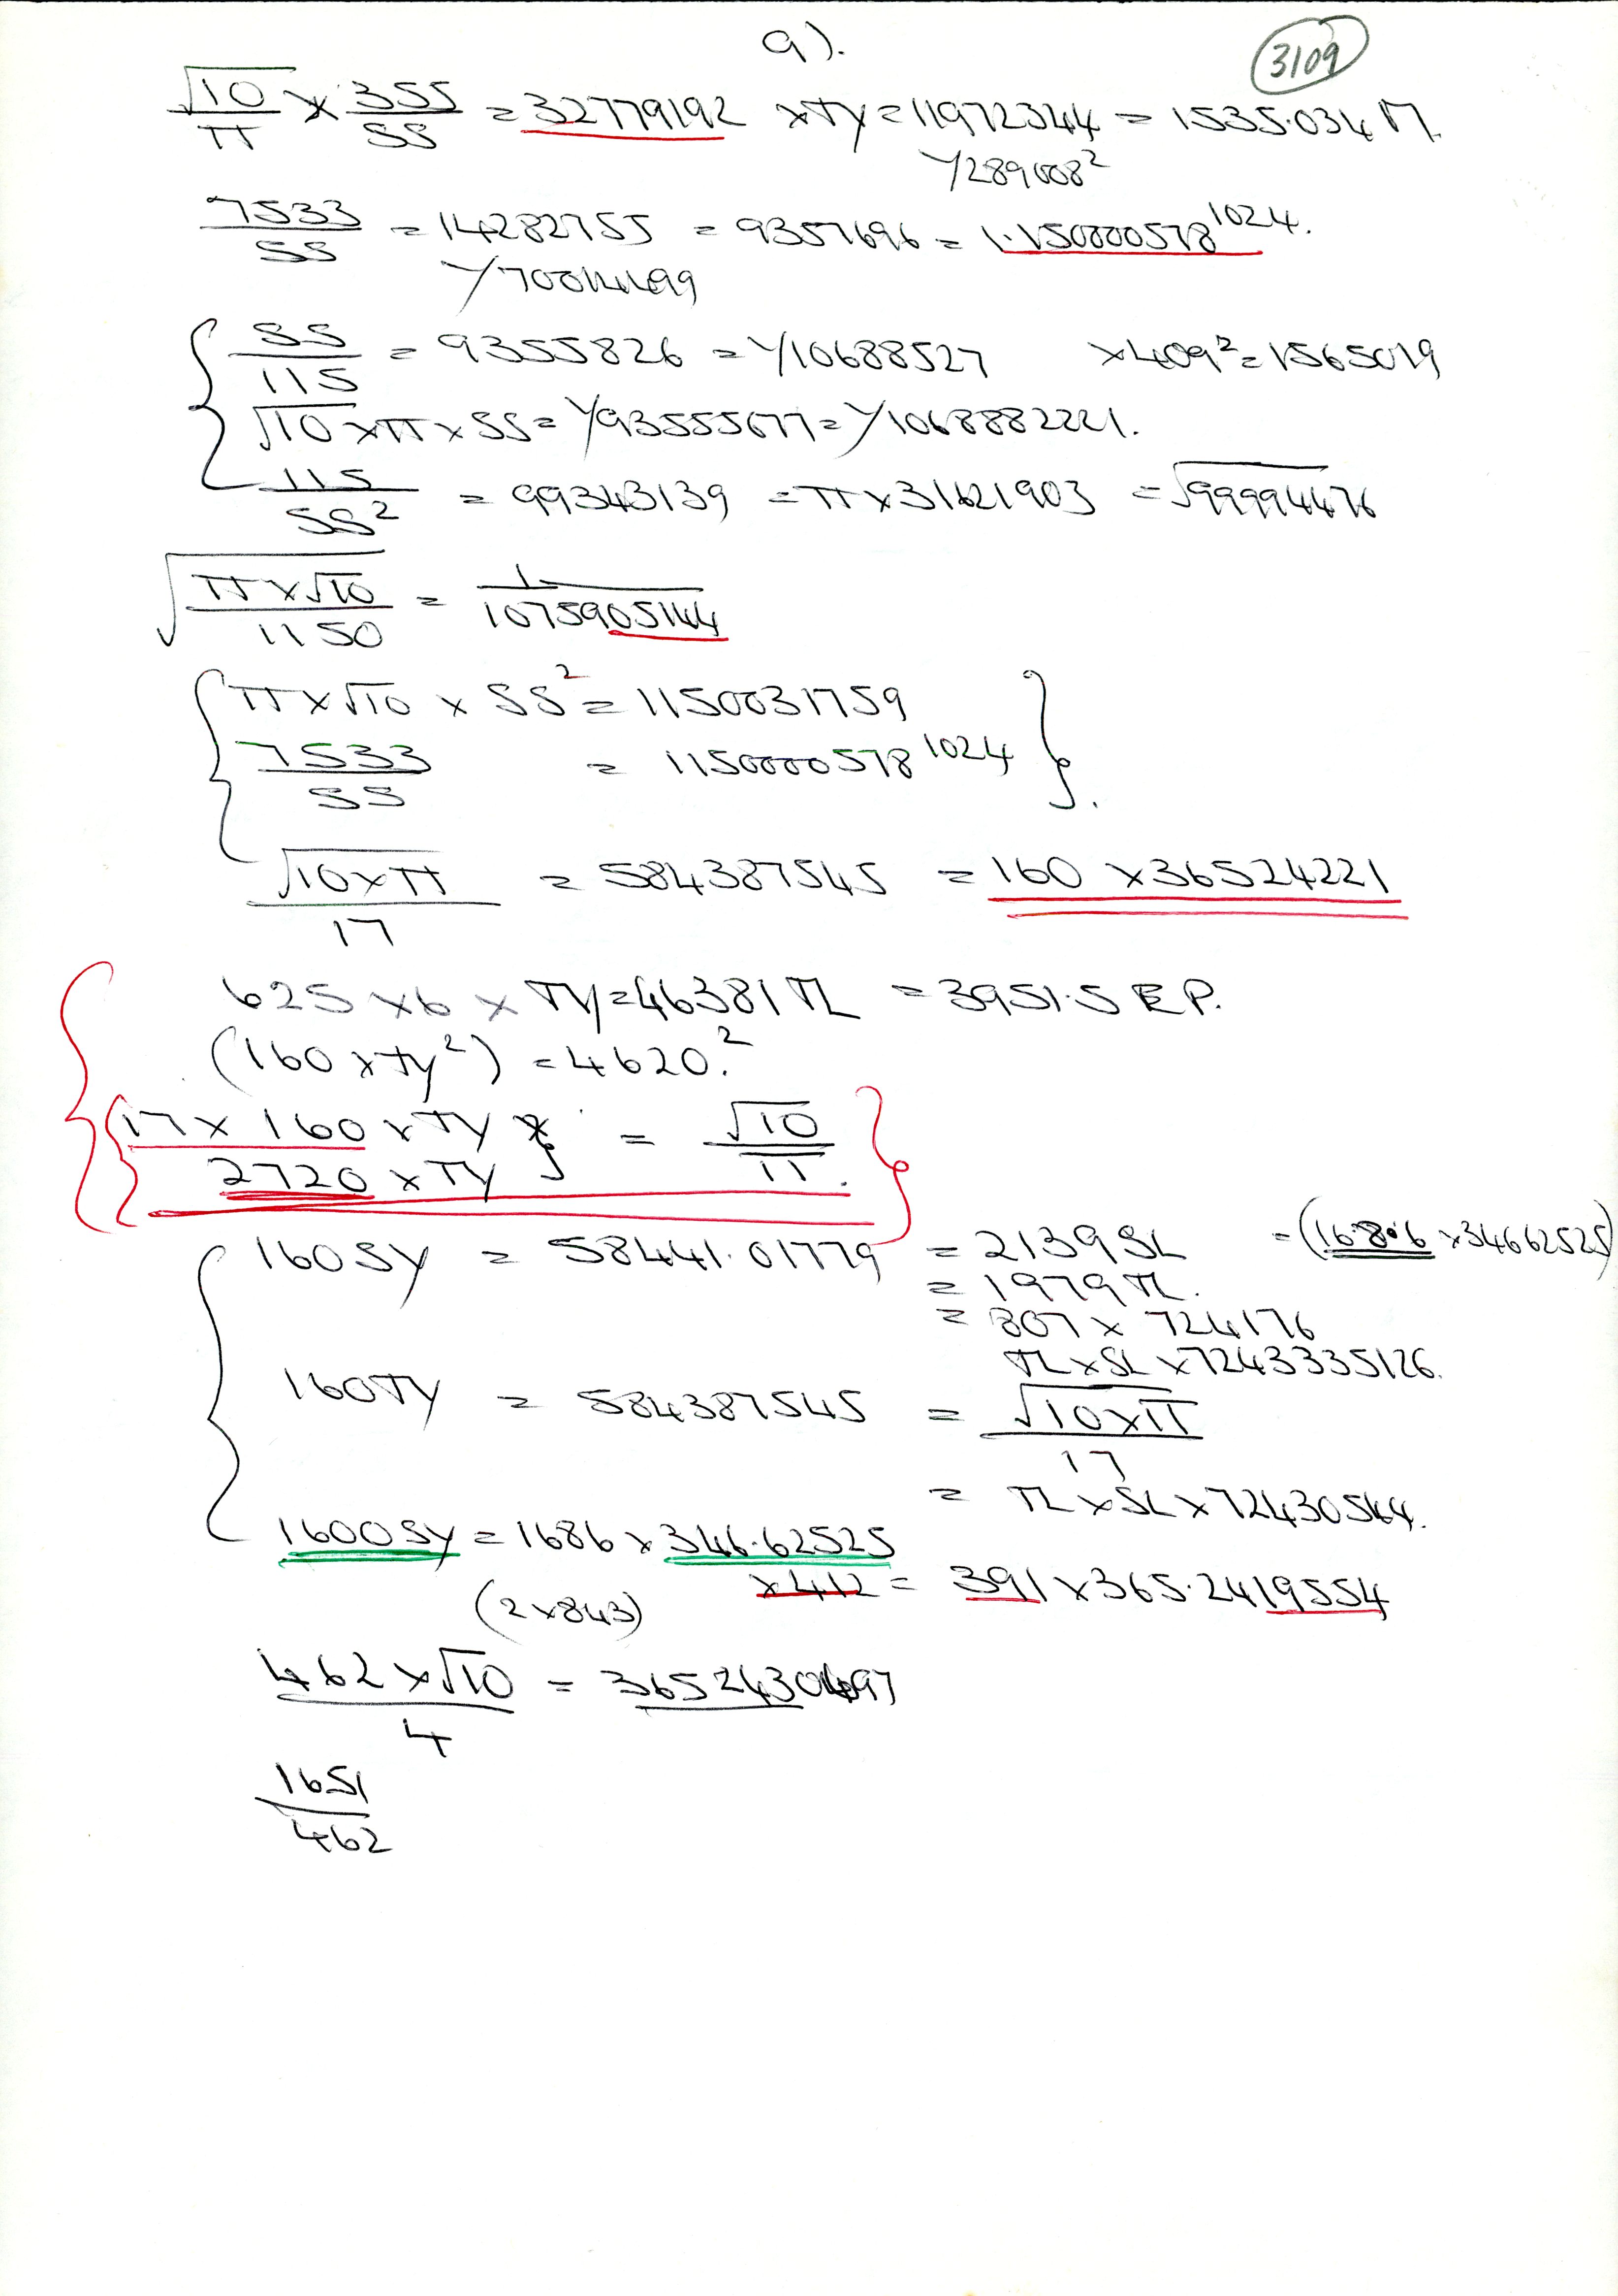 9).
3109
√10/π × 355/SS = 32779192 ×TY = 11972344 = 1535.034 M.
Y289008²
7533/SS = 14282755 = 9357696 = 1.150000578^1024.
Y70014499
SS/115 = 9355826 = Y10688527 ×409² = 1565019
√10 × π × SS = Y93555677 = Y1068882221.
115/SS² = 99343139 = π × 31621903 = √99994476
√(π × √10/1150) = 1/1075905144
π × √10 × SS² = 1150031759
7533/SS = 1150000578^1024
√10 × π/17 = 584387545 = 160 × 36524221
625 × 6 × TY = 46381 TL = 3951.5 E P.
(160 × TY²) = 4620.²
17 × 160 × TY = √10/π.
2720 × TY
160 SY = 58441.01779 = 2139 SL = (168.6 × 34662525)
= 1979 TL.
= 807 × 724176
TL × SL × 7243335126.
160 TY = 584387545 = √10 × π/17
= TL × SL × 72430564.
1600 SY = 1686 × 346.62525
(2 × 843) × 412 = 391 × 365.2419554
462 × √10/4 = 3652430497
1651/462